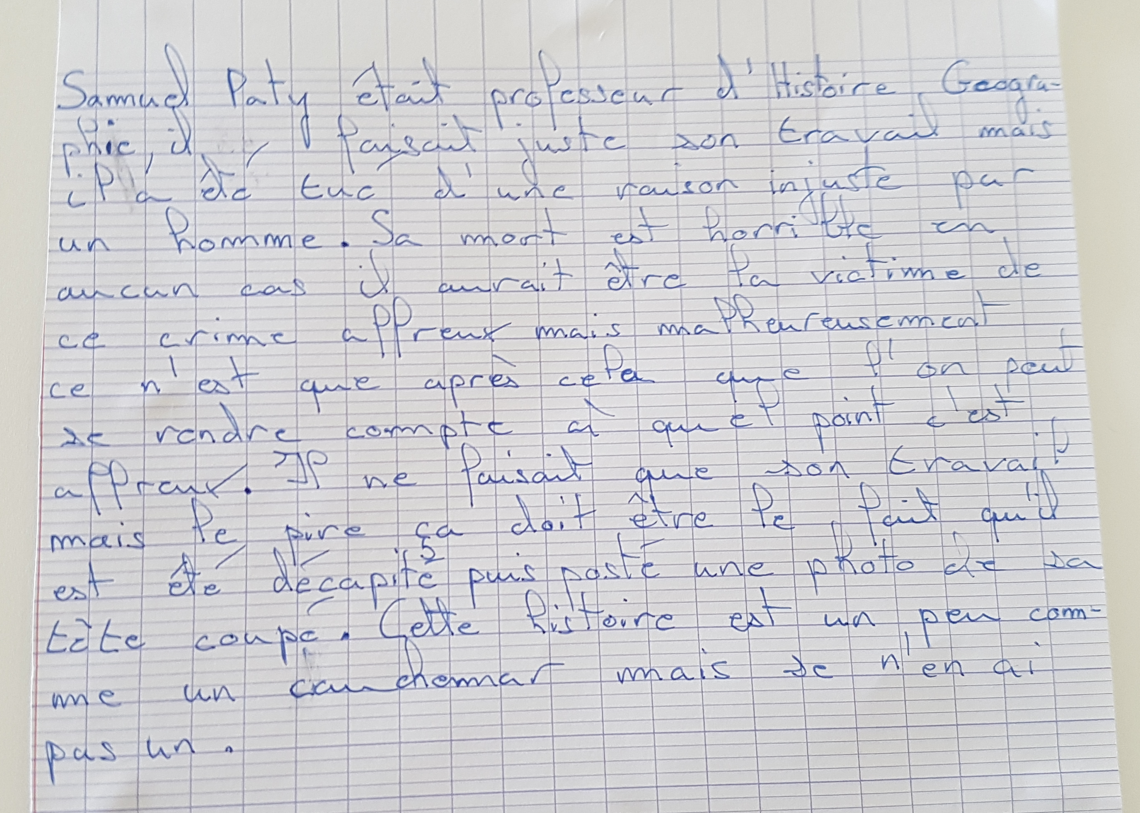 Samuel Paty était professeur d'Histoire Geogra-
phie, il faisait juste son travail mais
il a été tué d'une raison injuste par
un homme. Sa mort est horrible en
aucun cas il aurait être la victime de
ce crime affreux mais malheureusement
ce n'est que après cela que l'on peut
se rendre compte à quel point c'est
affreux. Il ne faisait que son travail
mais le pire ça doit être le fait qu'il
est été décapité puis posté une photo de sa
tête coupé. Cette histoire est un peu com-
me un cauchemar mais se n'en ai
pas un.